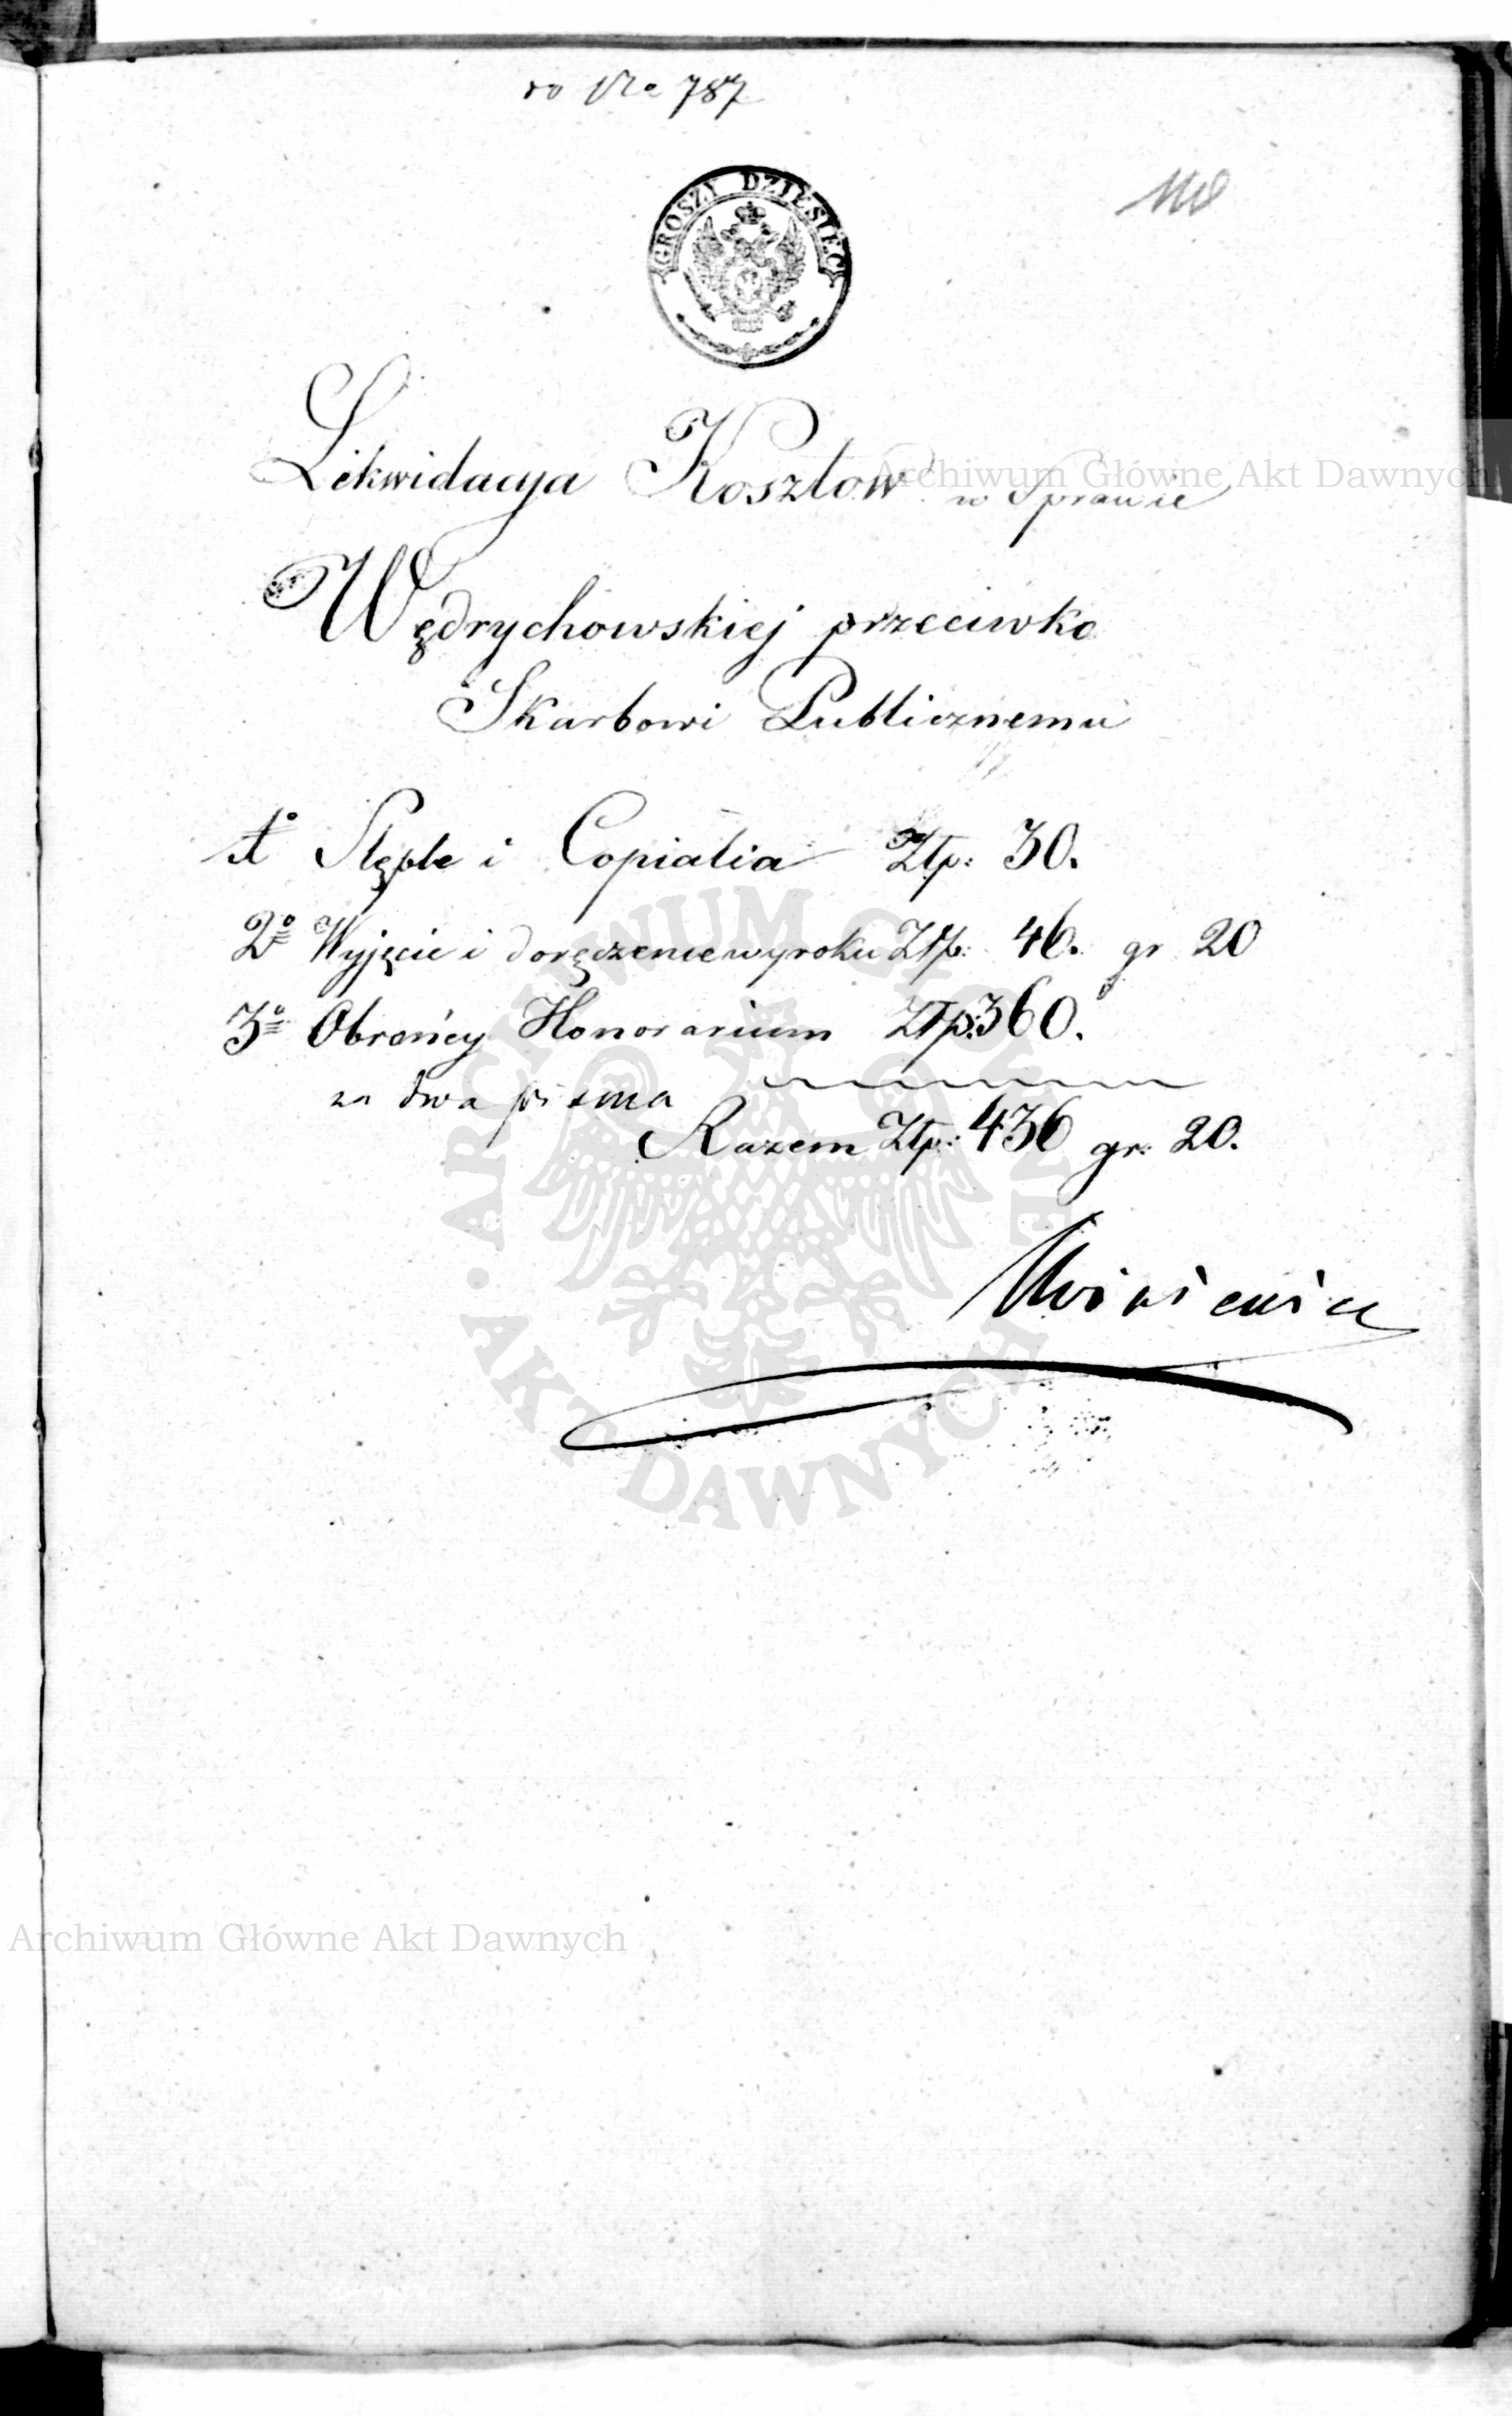 do Nr 787
GROSZY DZIESIĘĆ
Likwidacyja Kosztow w Sprawie
Wędrychowskiej przeciwko
Skarbowi Publicznemu
1º Stęple i Copialia Złp: 30.
2º Wyjęcie i doręczenie wyroku Złp: 46. gr 20
3º Obrońcy Honorarium Złp: 360.
za dwa pisma
Razem Złp: 436 gr: 20.
Archiwum Główne Akt Dawnych
ARCHIWUM GŁÓWNE AKT DAWNYCH
Archiwum Główne Akt Dawnych